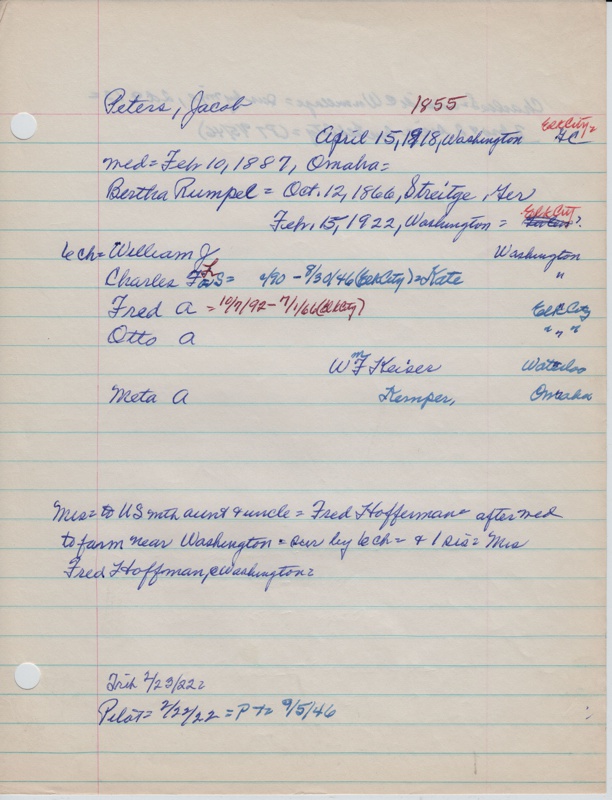 Peters, Jacob 1855
April 15, 1918, Washington Elk City =
FC
med = Feb 10, 1887, Omaha =
Bertha Rumpel = Oct. 12, 1866, Streitge, Ger
Feb. 15, 1922, Washington = Elk City ?
6 ch = William J Washington
Charles F S = 2/90 - 8/30/46 (Elk City) = Kate "
Fred A = 10/7/92 - 7/1/66 (Elk City) Elk City
Otto A " " "
Wm F Keiser Waterloo
Meta A Kemper, Omaha
Mrs = to US with aunt & uncle = Fred Hofferman = after med
to farm near Washington = sur by 6 ch = & 1 sis = Mrs
Fred Hoffman, Washington =
Trib 2/23/22 =
Pilot = 2/22/22 = P T = 9/5/46